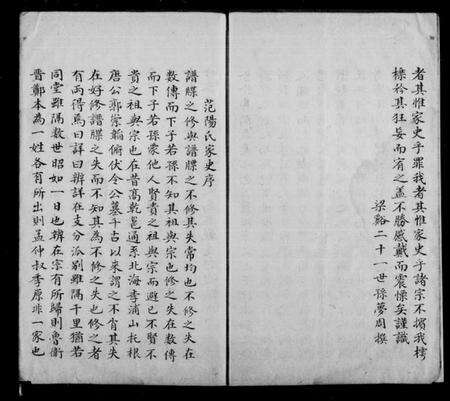 者其惟家史乎罪我者其惟家史乎諸宗不擯我樗
櫟矜其狂妄而宥之盖不勝感戴而震慄矣謹識
梁谿二十一世孫夢周撰
范陽氏家史序
譜牒之修與譜牒之不修其失常均也不修之失在
數傳而下子若孫不知其祖與宗也修之失在數傳
而下子若孫豪他人賢貴之祖與宗而避己不賢不
貴之祖與宗也在昔高乾邕通系北海李浦山托根
唐公郭崇韜俯伏令公墓千古以來謂之不肖其失
在好修譜牒之失而不知其為不修之失也修之者
有兩得焉曰詳曰辨詳在支分派别雖隔千里猶若
同堂雖隔数世昭如一日也辨在宗有所歸則魯衛
晋鄭本為一姓各有所出則孟仲叔季原非一家也